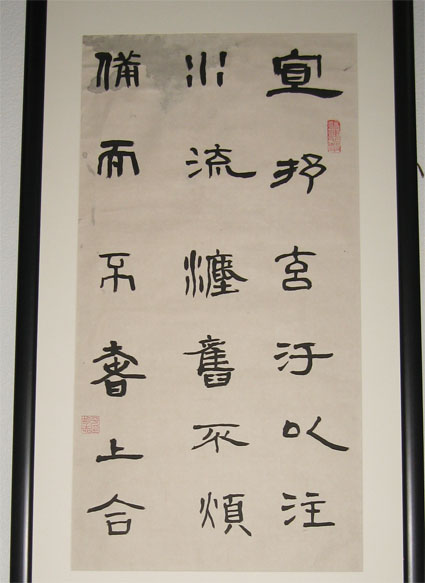 宣抒玄汙以注
水流灋舊不煩
備而不奢上合